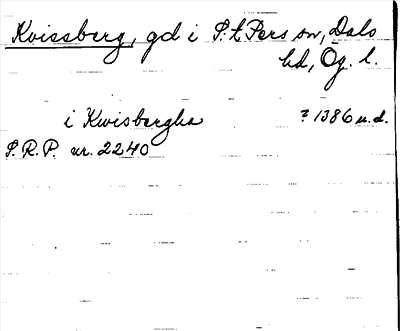 Kvissberg, gd i S:t Pers sn, Dals
hd, Ög. l.
i Kwisbergha ? 1386 u.d.
S.R.P. nr. 2240